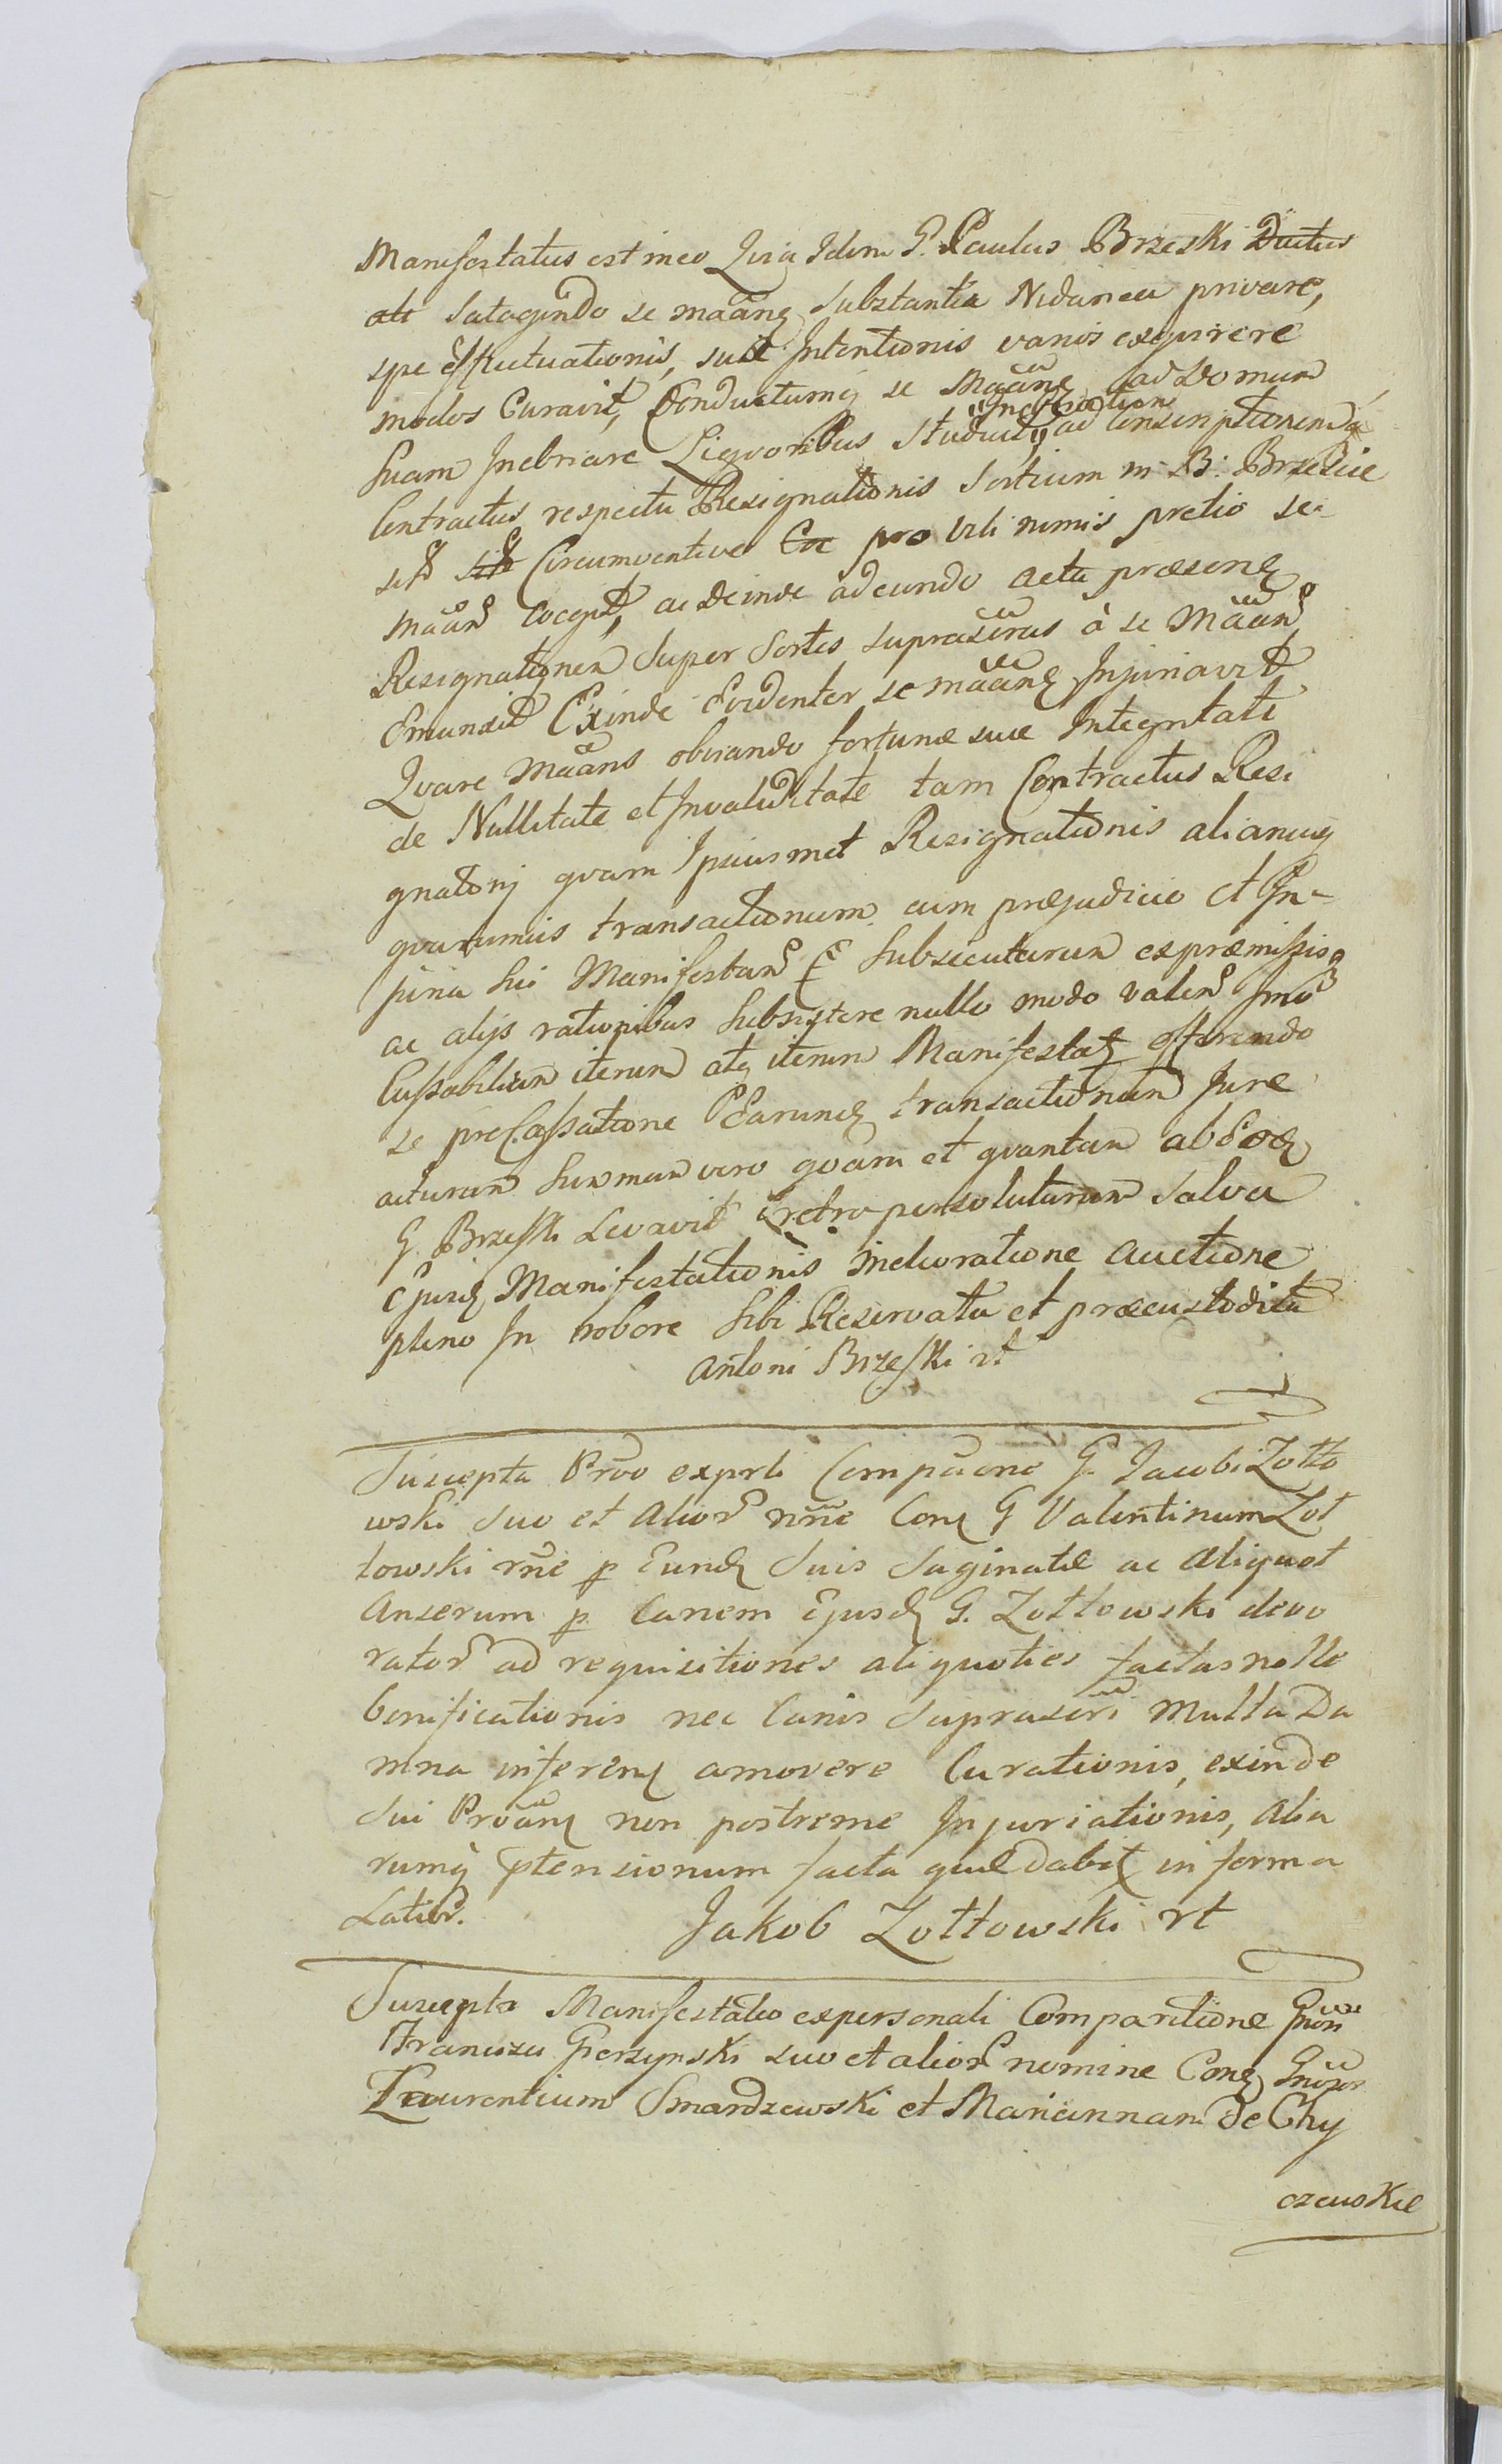 Manifestatus est in eo Quia Idem G. Paulus Brzeski Ductus
ali Satagendo se mãang substantia Nidanea privare,
spe effectuationis, suæ Intentionis varios exquirere
modos Curavit, Conductumq se Mãang ad Domum
Suam Inebriare Liquoribus Studuit, ad Conscriptionem
Inebriatum
Contractus respectu Resignationis Sortium in B. Brzezie
Circumventive pro vili nimis pretio se
mãan coegit, ac deinde adeundo acta præsens
Resignationem Super Sortes suprascras à se Mãan
Emunxit Exinde Evidenter se mãang Injuriavit
Qvare Mãans obviando fortunæ suæ Integritati
de Nullitate et Invaliditate tam Contractus Resi
gnatorij qvam Ipsiusmet Resignationis aliarumq
qvarumvis transactionum cum præjudicio et In-
juria Sui Manifestan Subsecutarum ex præmissis
ac alijs rationibus Subsistere nullo modo valen Imo
Cassabilium iterum atq iterum Manifestat offerendo
se pro Cassatione Earund transactionum Jure
acturum Summam vero qvam et qvantam ab Eod
G. Brzeski Levavit retro persoluturum Salva
Ejusd Manifestationis melioratione auctione
pleno In robore Sibi Reservata et præcustodita
Antoni Brzeski
Suscepta Prõo ex prli Compãone G. Jacobi Zołto
wski suo et Alior nõne Con G Valentinum Zoł
towski rñe p Eund Suis Saginatæ ac Aliquot
Anserum p Canem Ejusd G. Zołtowski devo
rator ad requisitiones aliquoties factas nolle
bonificationis nec Canis Suprascri Multa Da
mna inferen amovere Curationis, exinde
Sui Prõan non postreme Injuriationis, Alia
rumq ptensionum facta quæ dabit in forma
Latior.
Jakob Zołtowski
Suscepta Manifestatio ex personali Comparitione Gnosi
Francisci Gierzynski suo et alior nomine Con Gnosos
Laurentium Smardzewski et Mariannam de Chy
czewskie